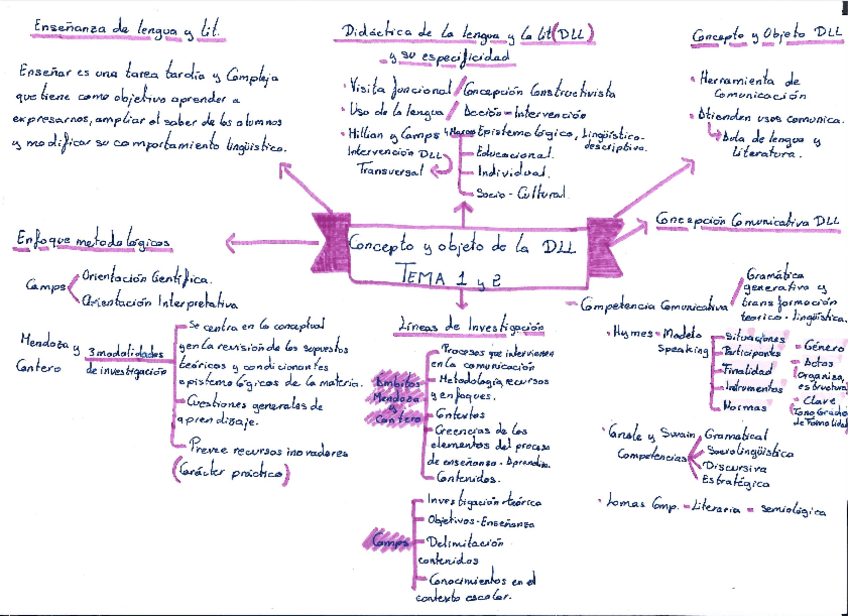 Enseñanza de lengua y lit.
Enseñar es una tarea tardía y Compleja
que tiene como objetivo aprender a
expresarnos, ampliar el saber de los alumnos
y modificar su comportamiento lingüístico.
Didáctica de la lengua y la lit (DLL)
y su especificidad
· Visita funcional / Concepción Constructivista
· Uso de la lengua / Acción-Intervención
· Hillian y Camps Marco Epistemológico, Lingüístico-
descriptivo.
Intervención DLL
Transversal
Educacional.
Individual.
Socio-Cultural.
Concepto y Objeto DLL
· Herramienta de
Comunicación
· Atienden usos comunica.
Aula de lengua y
Literatura.
Enfoque metodológicos
Camps
Orientación Científica.
Orientación Interpretativa
Mendoza y
Cantero
3 modalidades
de investigación
Se centra en lo conceptual
y en la revisión de los supuestos
teóricos y condicionantes
epistemológicos de la materia.
Cuestiones generales de
aprendizaje.
Prevee recursos innovadores
(Carácter práctico)
Concepto y objeto de la DLL
TEMA 1 y 2
Líneas de Investigación
Ámbitos
Mendoza
y
Cantero
Procesos que intervienen
en la comunicación
Metodología, recursos
y enfoques.
Contextos
Creencias de los
elementos del proceso
de enseñanza. Aprendiza.
Contenidos.
Camps
Investigación teórica
Objetivos-Enseñanza
Delimitación
contenidos
Conocimientos en el
contexto escolar.
Concepción Comunicativa DLL
- Competencia Comunicativa
Gramática
generativa y
transformación
teórico-lingüística.
· Hymes-Modelo
Speaking
Situaciones
Participantes
Finalidad
Instrumentos
Normas
- Género
- Actos
(Organizo,
estructura
- Clave
(Tono Grado
de Formalidad
· Canale y Swain
Competencias
Gramatical
Sociolingüística
Discursiva
Estratégica
· Lomas Comp. - Literaria - semiológica